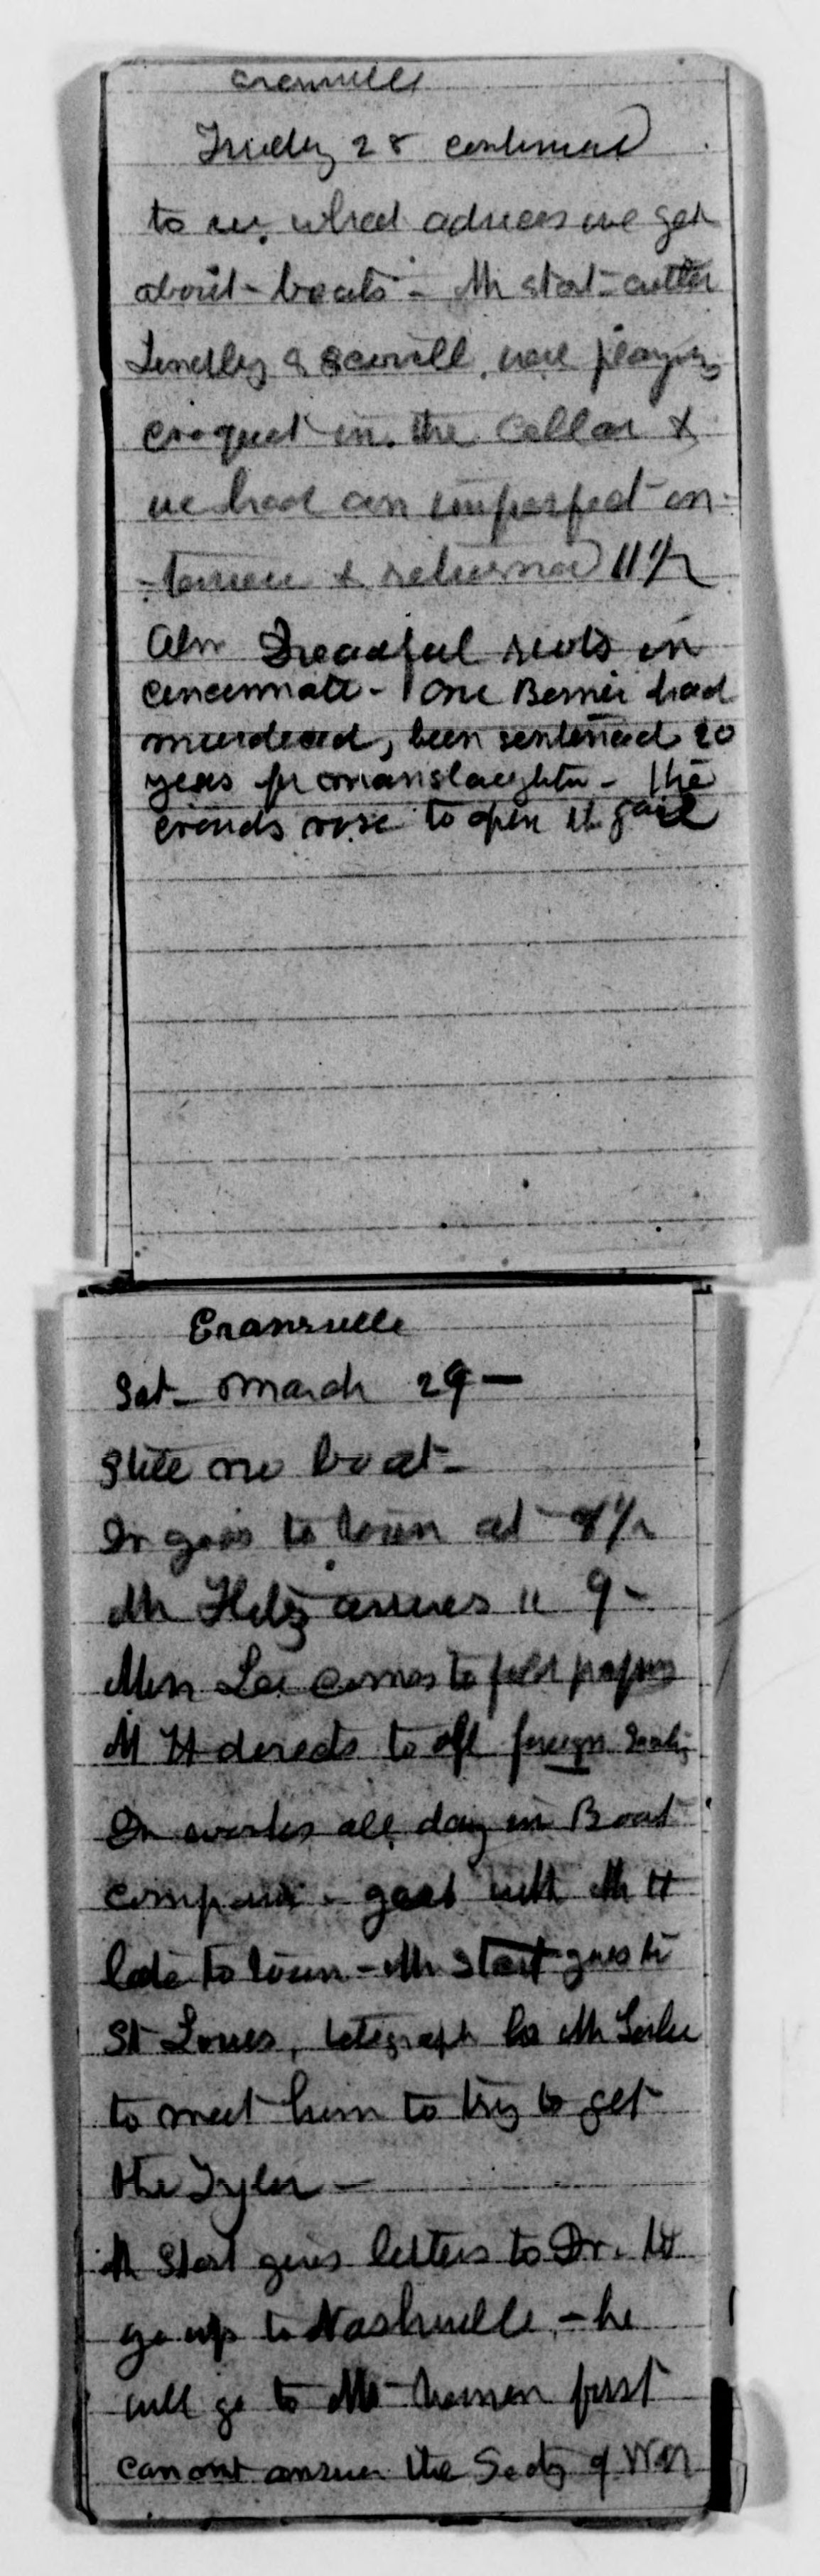 Evansville
Friday 28 continued
to see what advices we get
about boats - Mr
Lindley & Sewell were playing
croquet in the cellar &
we had an imperfect in-
-terview & returned 11 1/2
Also Dreadful riots in
Cincinnati - One Berner had
murdered, been sentenced 20
years for manslaughter - The
crowds rose to open the gaol
Evansville
Sat- March 29 -
Still no boat -
Dr goes to town at 8 1/2
Mr arrives " 9 -
Miss Lee comes to fold papers
Mr H directs to off foreign
Dr works all day in Boat
- goes with Mr H
late to town - Mr goes to
St Louis, telegraph to Mr
to meet him to try to get
the Tyler -
Mr gives letters to Dr. to
go up to Nashville, - he
will go to first
can not answer the Secty of War